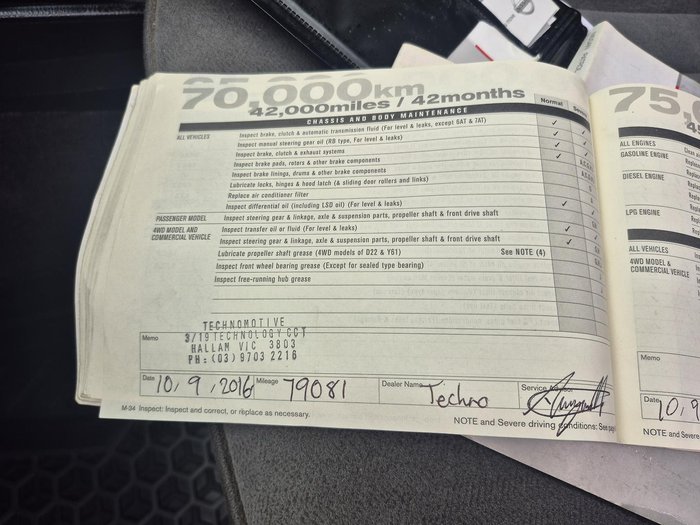 70,000km
42,000miles / 42months
CHASSIS AND BODY MAINTENANCE
Normal
ALL VEHICLES
Inspect brake, clutch & automatic transmission fluid (For level & leaks, except 6AT & 7AT)
Inspect manual steering gear oil (RB type, For level & leaks)
Inspect brake, clutch & exhaust systems
Inspect brake pads, rotors & other brake components
Inspect brake linings, drums & other brake components
Lubricate locks, hinges & hood latch (& sliding door rollers and links)
Replace air conditioner filter
Inspect differential oil (including LSD oil) (For level & leaks)
PASSENGER MODEL
Inspect steering gear & linkage, axle & suspension parts, propeller shaft & front drive shaft
4WD MODEL AND
COMMERCIAL VEHICLE
Inspect transfer oil or fluid (For level & leaks)
Inspect steering gear & linkage, axle & suspension parts, propeller shaft & front drive shaft
Lubricate propeller shaft grease (4WD models of D22 & Y61) See NOTE (4)
Inspect front wheel bearing grease (Except for sealed type bearing)
Inspect free-running hub grease
TECHNOMOTIVE
3/19 TECHNOLOGY CCT
HALLAM VIC 3803
PH: (03) 9703 2216
Memo
Date 10, 9, 2016 Mileage 79081 Dealer Name Techno Service
M-34 Inspect: Inspect and correct, or replace as necessary.
NOTE and Severe driving conditions: See
75
ALL ENGINES
GASOLINE ENGINE
DIESEL ENGINE
LPG ENGINE
ALL VEHICLES
4WD MODEL &
COMMERCIAL VEHICLE
Memo
Date 10, 9
NOTE and Severe